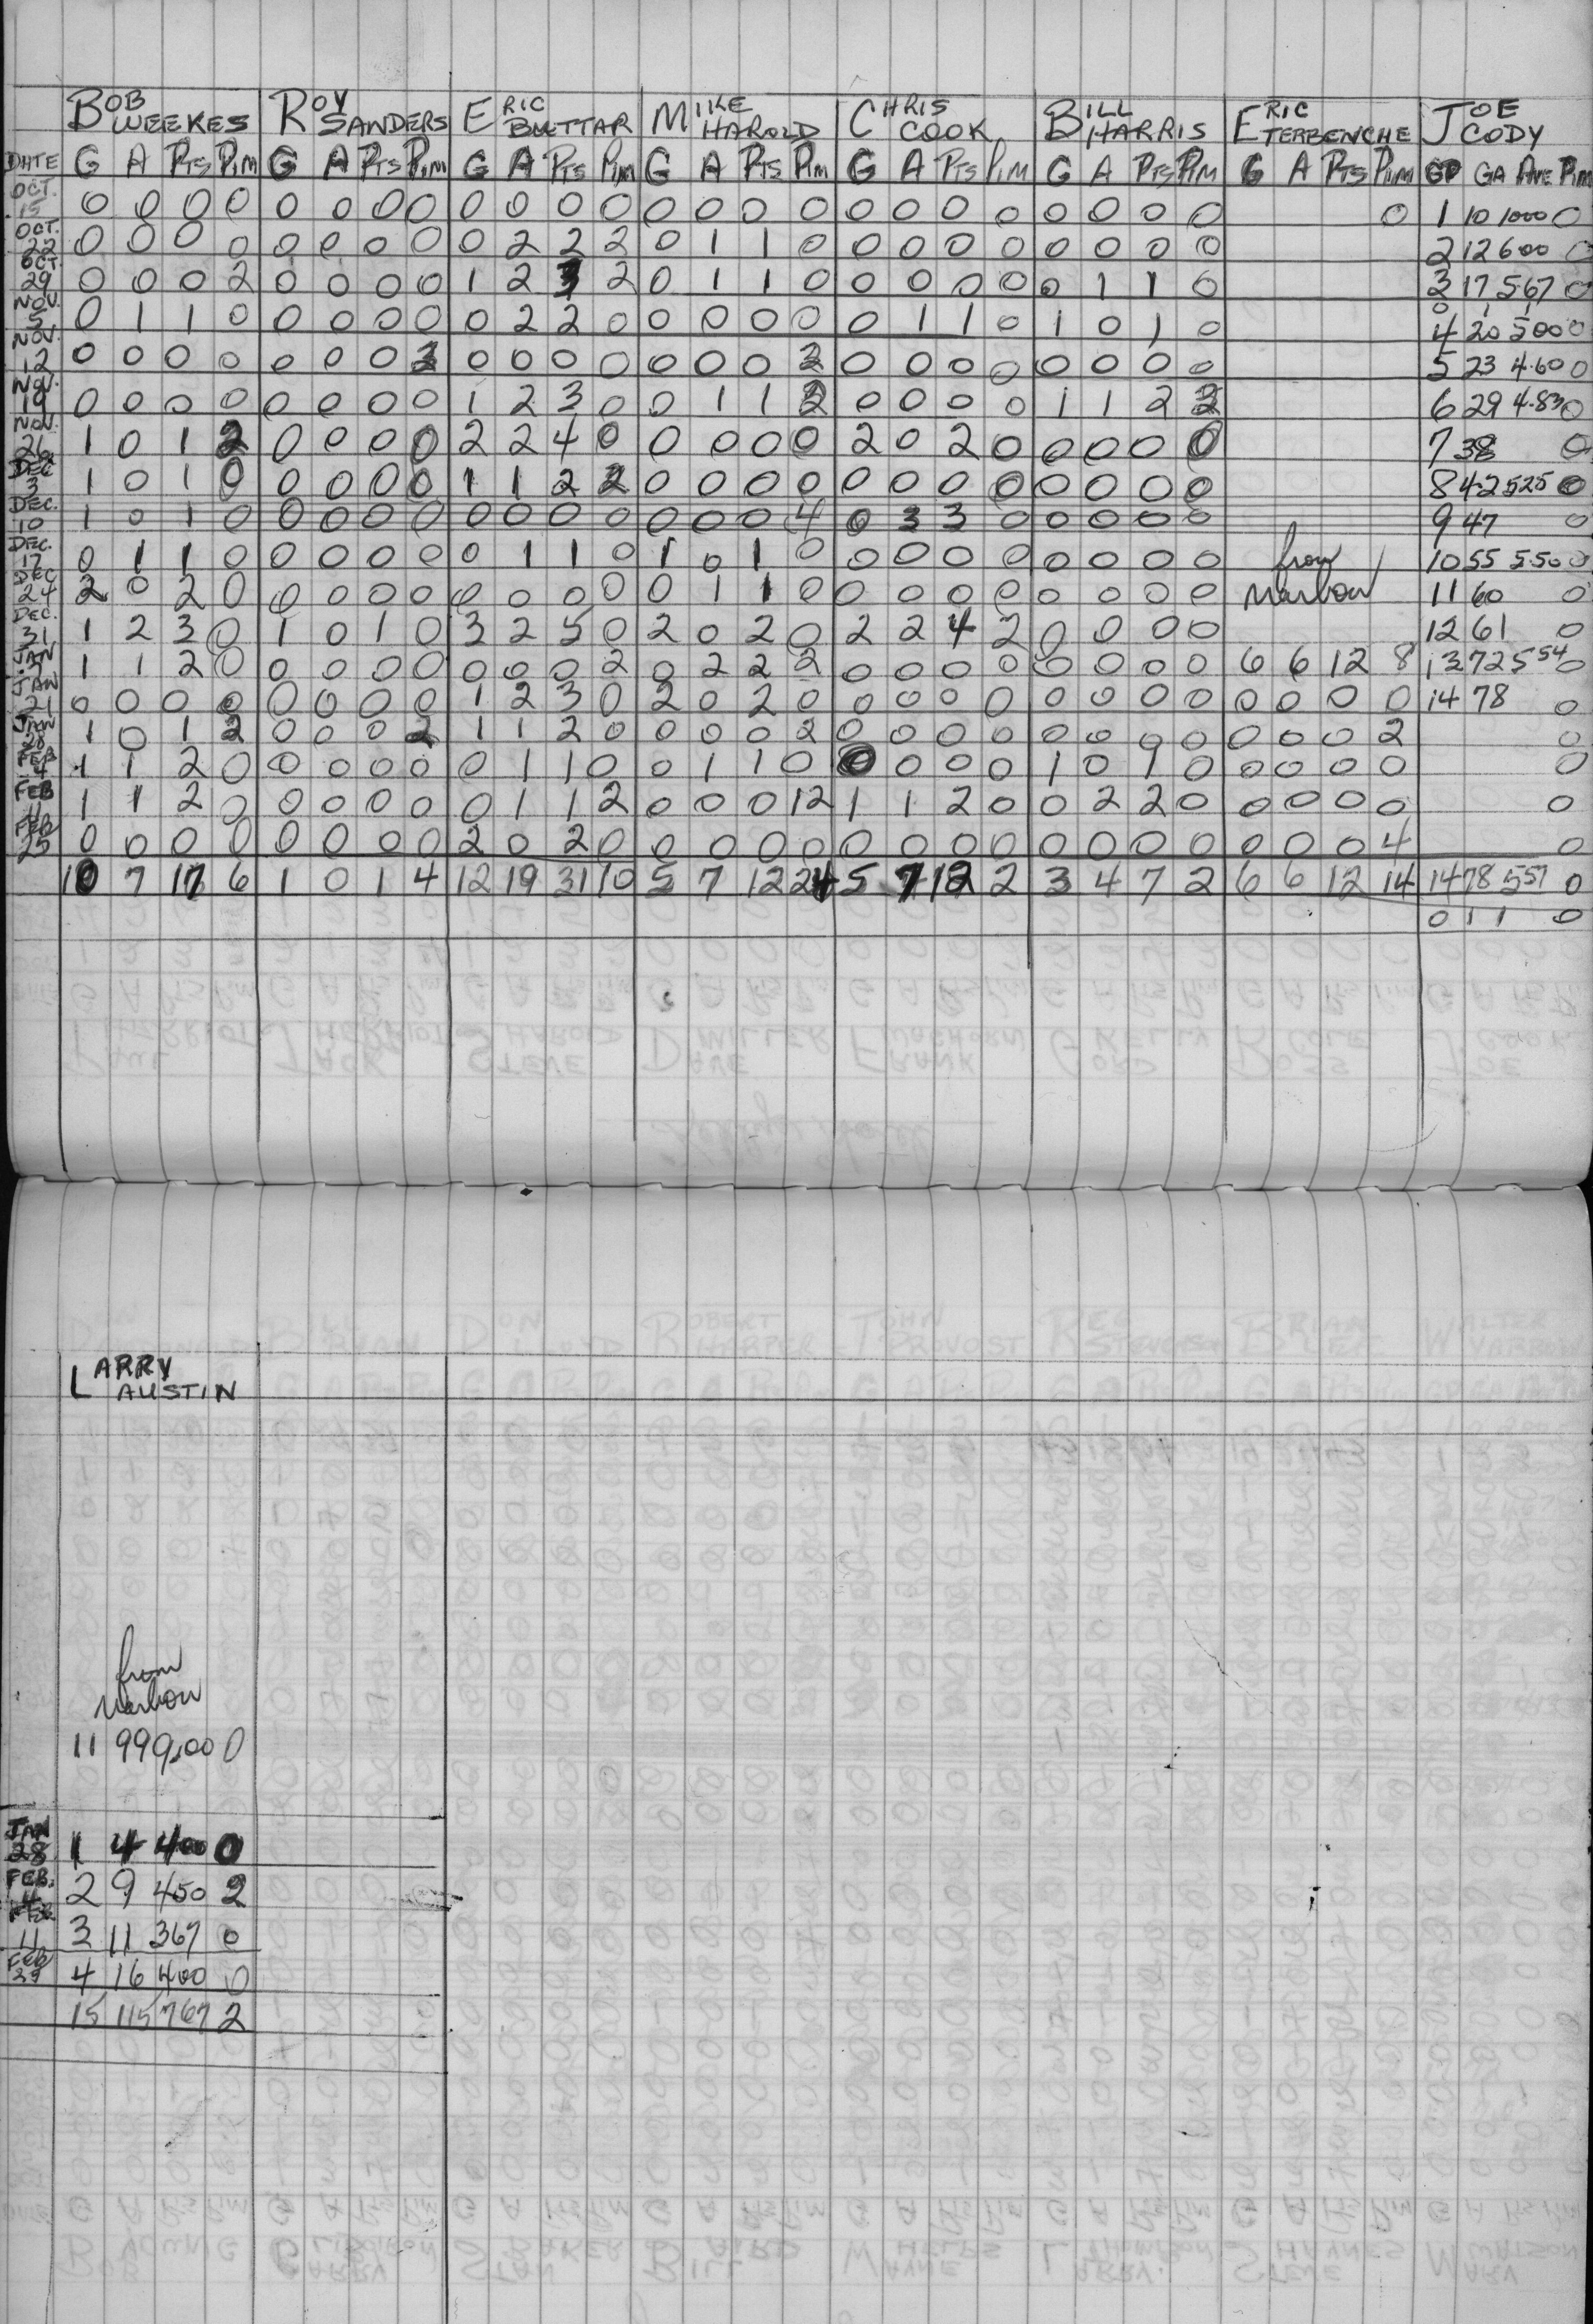 BOB WEEKES ROY SANDERS ERIC BUTTAR MIKE HAROLD CHRIS COOK BILL HARRIS ERIC TERBENCHE JOE CODY
DATE G A PTS PIM G A PTS PIM G A PTS PIM G A PTS PIM G A PTS PIM G A PTS PIM G A PTS PIM GP GA AVE PIM
OCT. 15 0 0 0 0 0 0 0 0 0 0 0 0 0 0 0 0 0 0 0 0 0 0 0 0 0 1 10 1000 0
OCT. 22 0 0 0 0 0 0 0 0 0 2 2 2 0 1 1 0 0 0 0 0 0 0 0 0 2 12 600 0
OCT. 29 0 0 0 2 0 0 0 0 1 2 3 2 0 1 1 0 0 0 0 0 0 1 1 0 3 17 567 0
NOV. 5 0 1 1 0 0 0 0 0 0 2 2 0 0 0 0 0 0 1 1 0 1 0 1 0 0 1 1 4 20 500 0
NOV. 12 0 0 0 0 0 0 0 2 0 0 0 0 0 0 0 2 0 0 0 0 0 0 0 0 5 23 4.60 0
NOV. 19 0 0 0 0 0 0 0 0 1 2 3 0 0 1 1 2 0 0 0 0 1 1 2 2 6 29 4.83 0
NOV. 26 1 0 1 2 0 0 0 0 2 2 4 0 0 0 0 0 2 0 2 0 0 0 0 0 7 38 0
DEC 3 1 0 1 0 0 0 0 0 1 1 2 2 0 0 0 0 0 0 0 0 0 0 0 0 8 42 525 0
DEC. 10 1 0 1 0 0 0 0 0 0 0 0 0 0 0 0 4 0 3 3 0 0 0 0 0 9 47 0
DEC. 17 0 1 1 0 0 0 0 0 0 1 1 0 1 0 1 0 0 0 0 0 0 0 0 0 from 10 55 5.50 0
DEC 24 2 0 2 0 0 0 0 0 0 0 0 0 0 1 1 0 0 0 0 0 0 0 0 0 11 60 0
DEC. 31 1 2 3 0 1 0 1 0 3 2 5 0 2 0 2 0 2 2 4 2 0 0 0 0 12 61 0
JAN 1 1 2 0 0 0 0 0 0 0 0 2 0 2 2 2 0 0 0 0 0 0 0 0 6 6 12 8 13 72 5 54 0
JAN 21 0 0 0 0 0 0 0 0 1 2 3 0 2 0 2 0 0 0 0 0 0 0 0 0 0 0 0 0 14 78 0
JAN 28 1 0 1 2 0 0 0 2 1 1 2 0 0 0 0 2 0 0 0 0 0 0 0 0 0 0 0 2 0
FEB 4 1 1 2 0 0 0 0 0 0 1 1 0 0 1 1 0 0 0 0 0 1 0 1 0 0 0 0 0 0
FEB 11 1 1 2 0 0 0 0 0 0 1 1 2 0 0 0 12 1 1 2 0 0 2 2 0 0 0 0 0 0
FEB 25 0 0 0 0 0 0 0 0 2 0 2 0 0 0 0 0 0 0 0 0 0 0 0 0 0 0 0 4 0
10 7 17 6 1 0 1 4 12 19 31 10 5 7 12 24 5 7 12 2 3 4 7 2 6 6 12 14 14 78 557 0
0 1 1 0
LARRY AUSTIN
from
11 99 9.00 0
JAN 28 1 4 400 0
FEB. 4 2 9 450 2
FEB 11 3 11 367 0
FEB 4 16 400 0
15 115 767 2